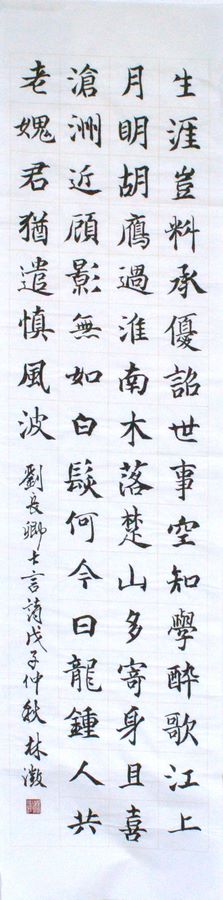 生涯豈料承優詔世事空知學醉歌江上
月明胡鷹過淮南木落楚山多寄身且喜
滄洲近顧影無如白髮何今日龍鍾人共
老媿君猶遣慎風波
劉長卿七言詩戊子仲秋林澂